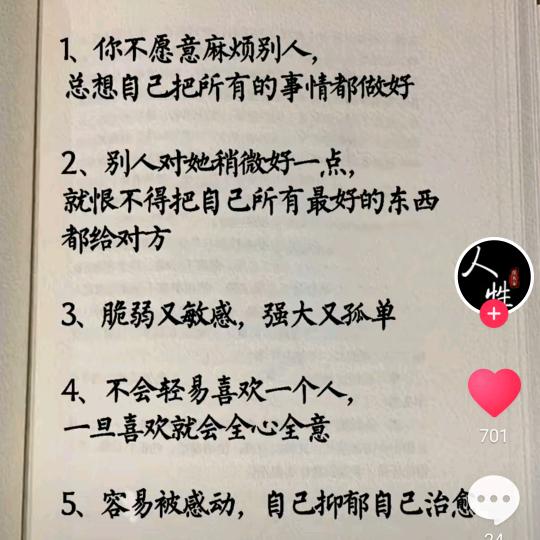 1、你不愿意麻烦别人，
总想自己把所有的事情都做好
2、别人对她稍微好一点，
就恨不得把自己所有最好的东西
都给对方
3、脆弱又敏感，强大又孤单
4、不会轻易喜欢一个人，
一旦喜欢就会全心全意
5、容易被感动，自己抑郁自己治愈
人性
701
24